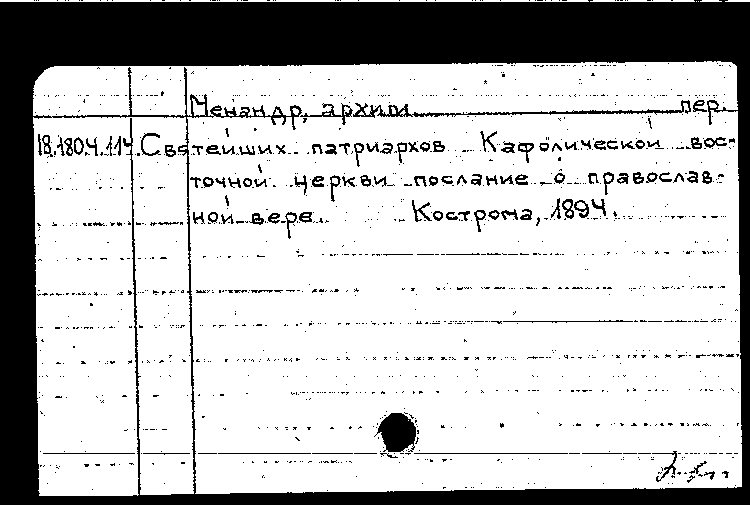 Менандр, архим. пер.
18.180.4.114. Святейших патриархов Кафолической вос-
точной церкви послание о православ-
ной вере. Кострома, 1894.